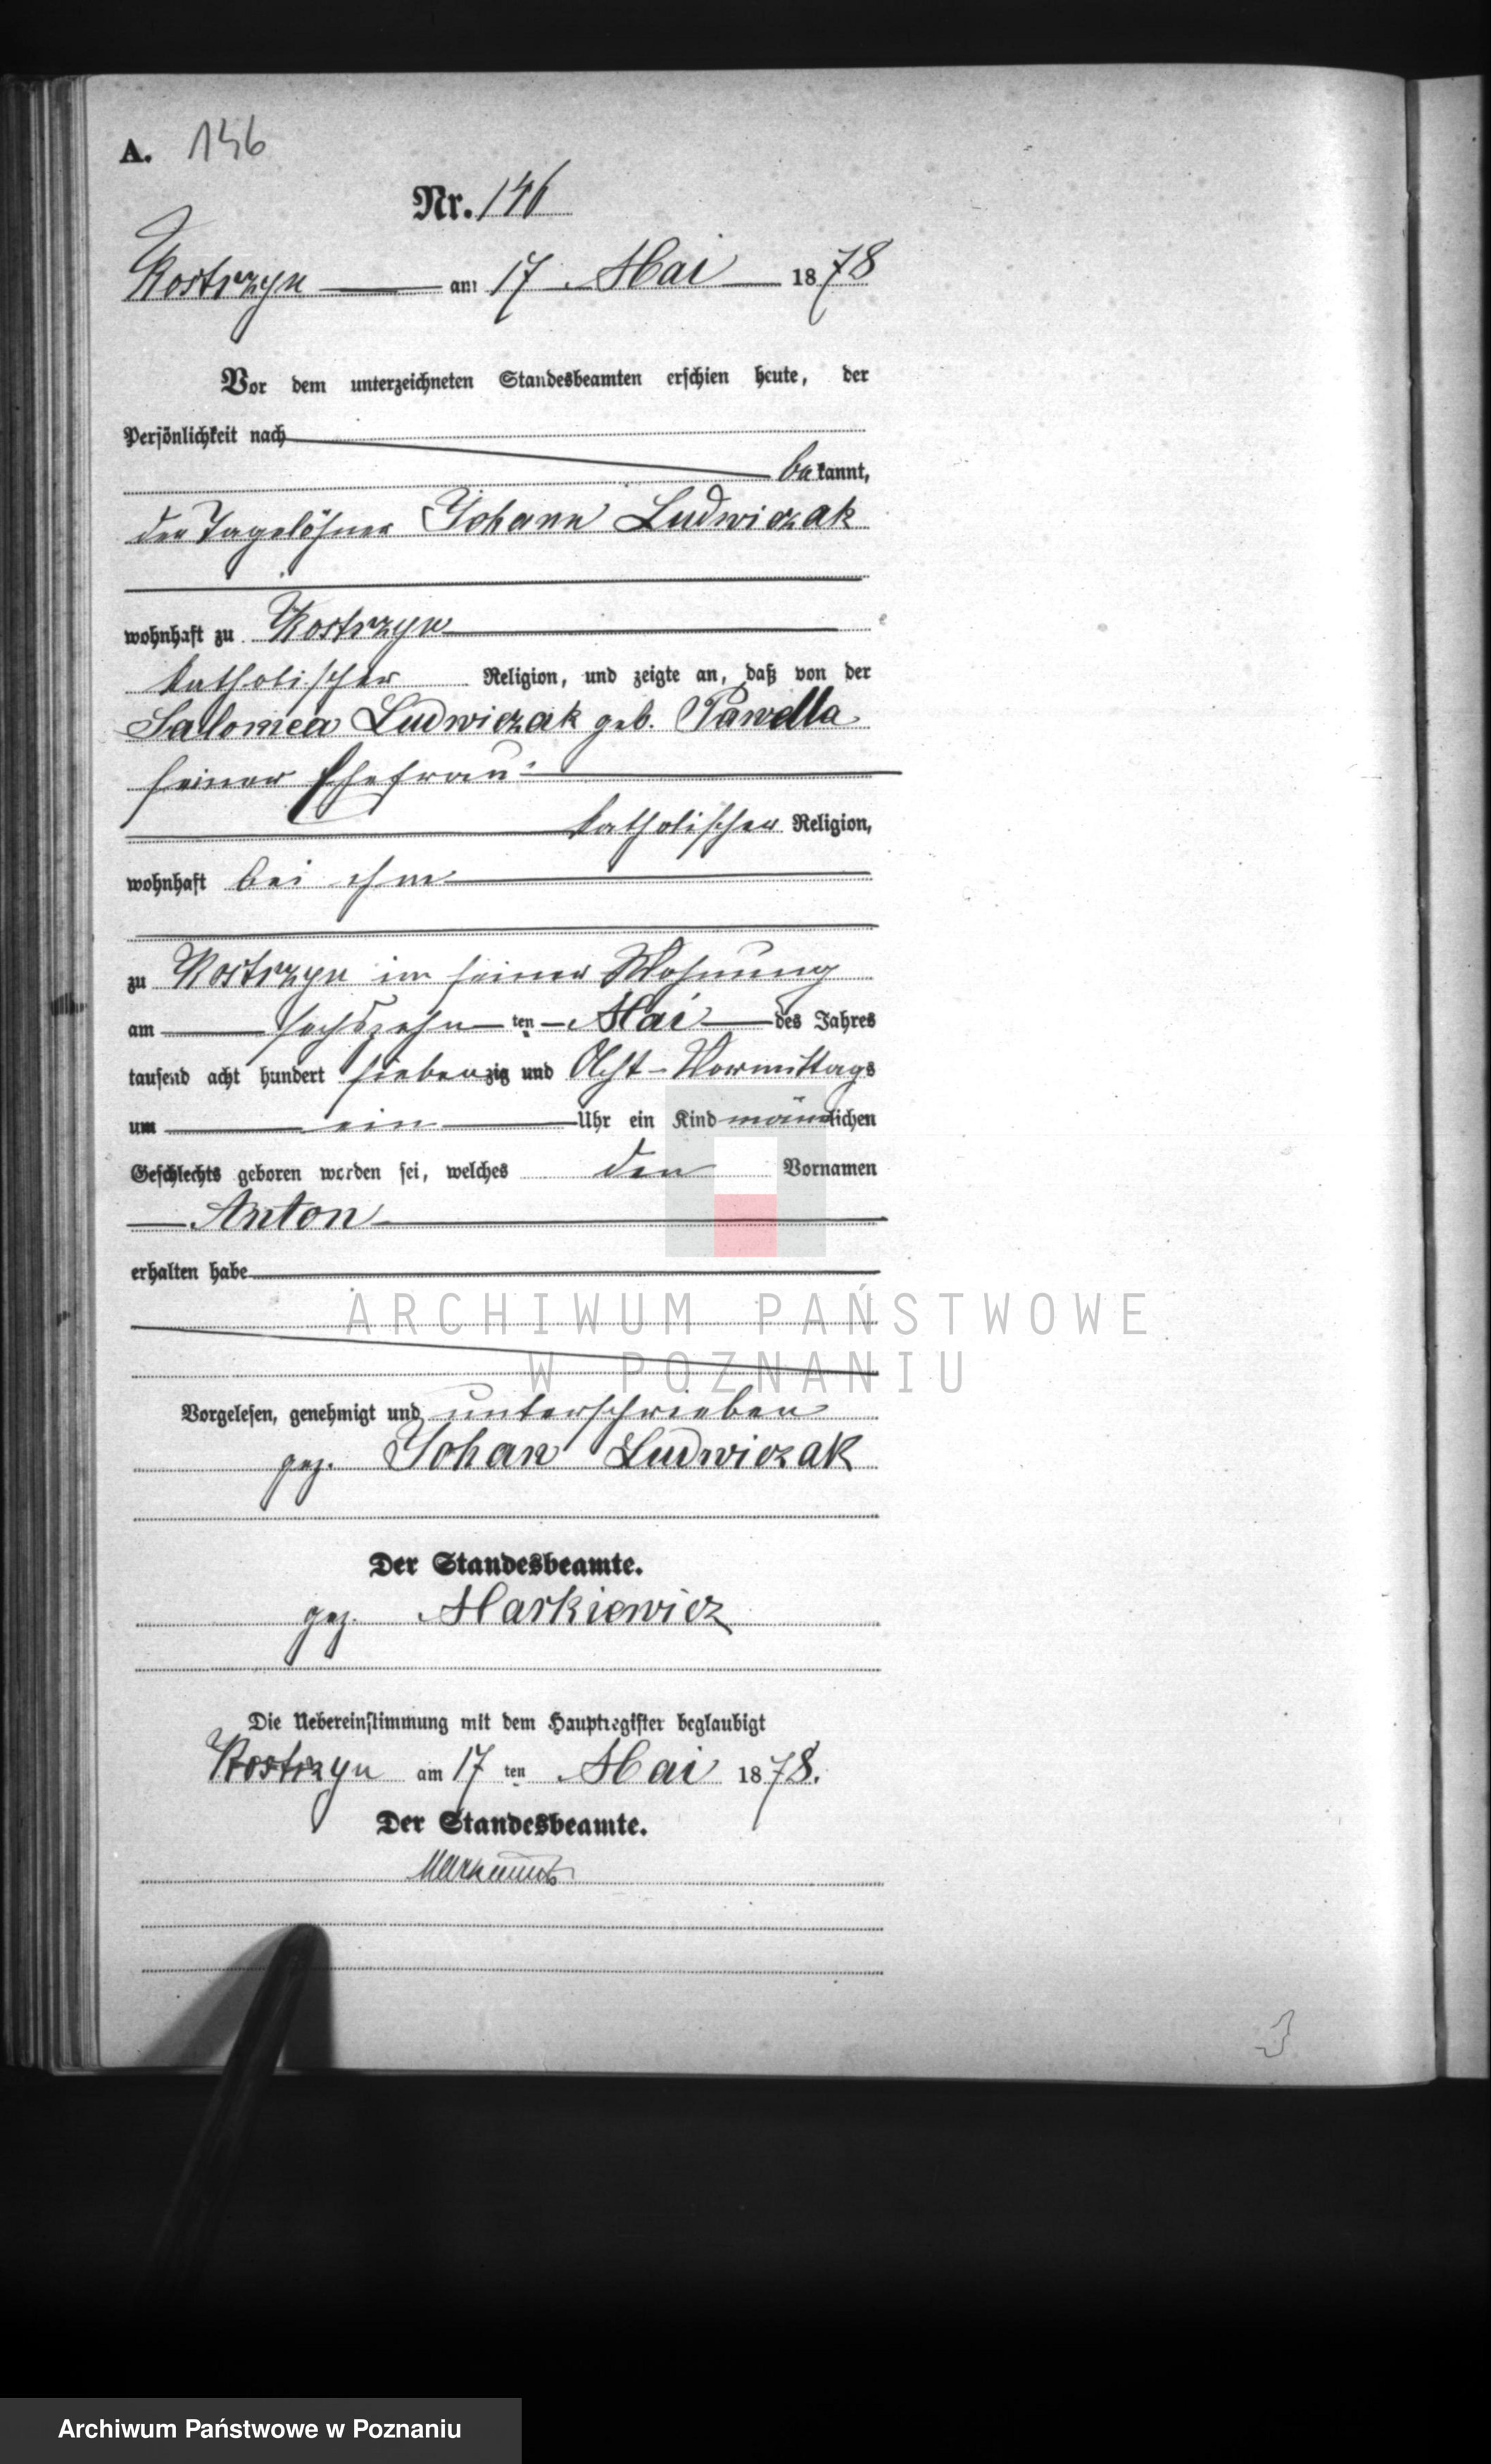 A. 146
Nr. 146
Kostrzyn am 17 Mai 1878
Vor dem unterzeichneten Standesbeamten erschien heute, der
Persönlichkeit nach
bekannt,
der Tagelöhner Johann Ludwiczak
wohnhaft zu Kostrzyn
katholischer Religion, und zeigte an, daß von der
Salomea Ludwiczak geb. Pawella
seiner Ehefrau
katholischer Religion,
wohnhaft bei ihm
zu Kostrzyn in seiner Wohnung
am sechszehn ten Mai des Jahres
tausend acht hundert siebenzig und Acht Vormittags
um ein Uhr ein Kind männlichen
Geschlechts geboren worden sei, welches den Vornamen
Anton
erhalten habe
ARCHIWUM PAŃSTWOWE
W POZNANIU
Vorgelesen, genehmigt und unterschrieben
gez. Johan Ludwiczak
Der Standesbeamte.
gez. Markiewicz
Die Uebereinstimmung mit dem Hauptregister beglaubigt
Kostrzyn am 17 ten Mai 1878.
Der Standesbeamte.
Archiwum Państwowe w Poznaniu